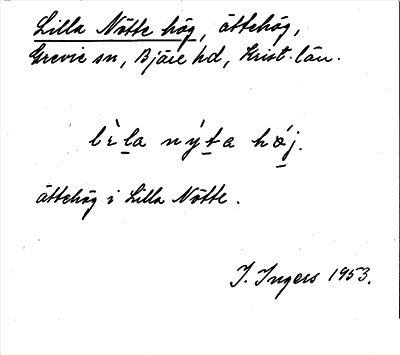 Lilla Nötte hög, ättehög,
Grevie sn, Bjäre hd, Krist. län.
lὲla nýta hǿj.
ättehög i Lilla Nötte.
J. Ingers 1953.